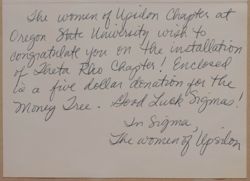 The women of Upsilon Chapter at
Oregon State University wish to
congratulate you on the installation
of Theta Rho Chapter! Enclosed
is a five dollar donation for the
Money Tree. Good Luck Sigmas!
In Sigma,
The women of Upsilon